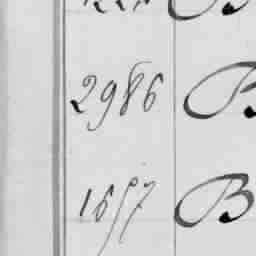 2986 B
1657 B